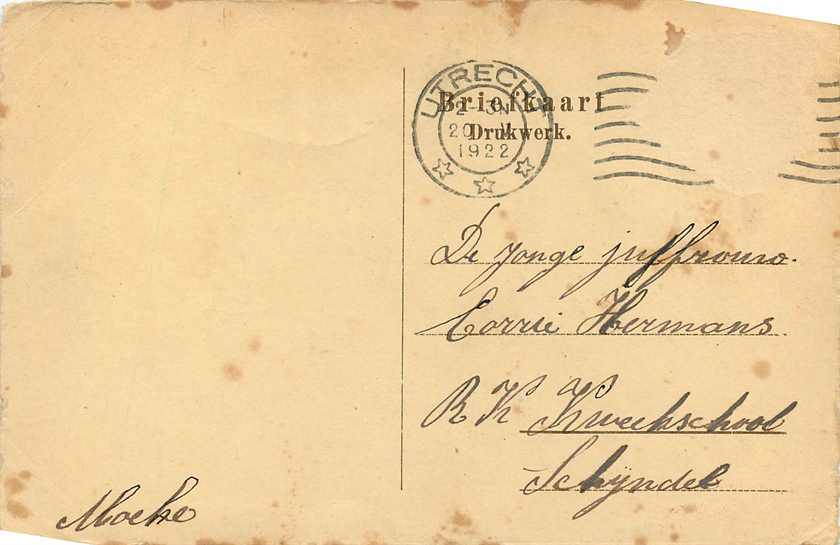 UTRECHT
20 1922
Briefkaart
Drukwerk.
De Jonge juffrouw.
Corrie Hermans
R K Kweekschool
Schyndel
Moeke